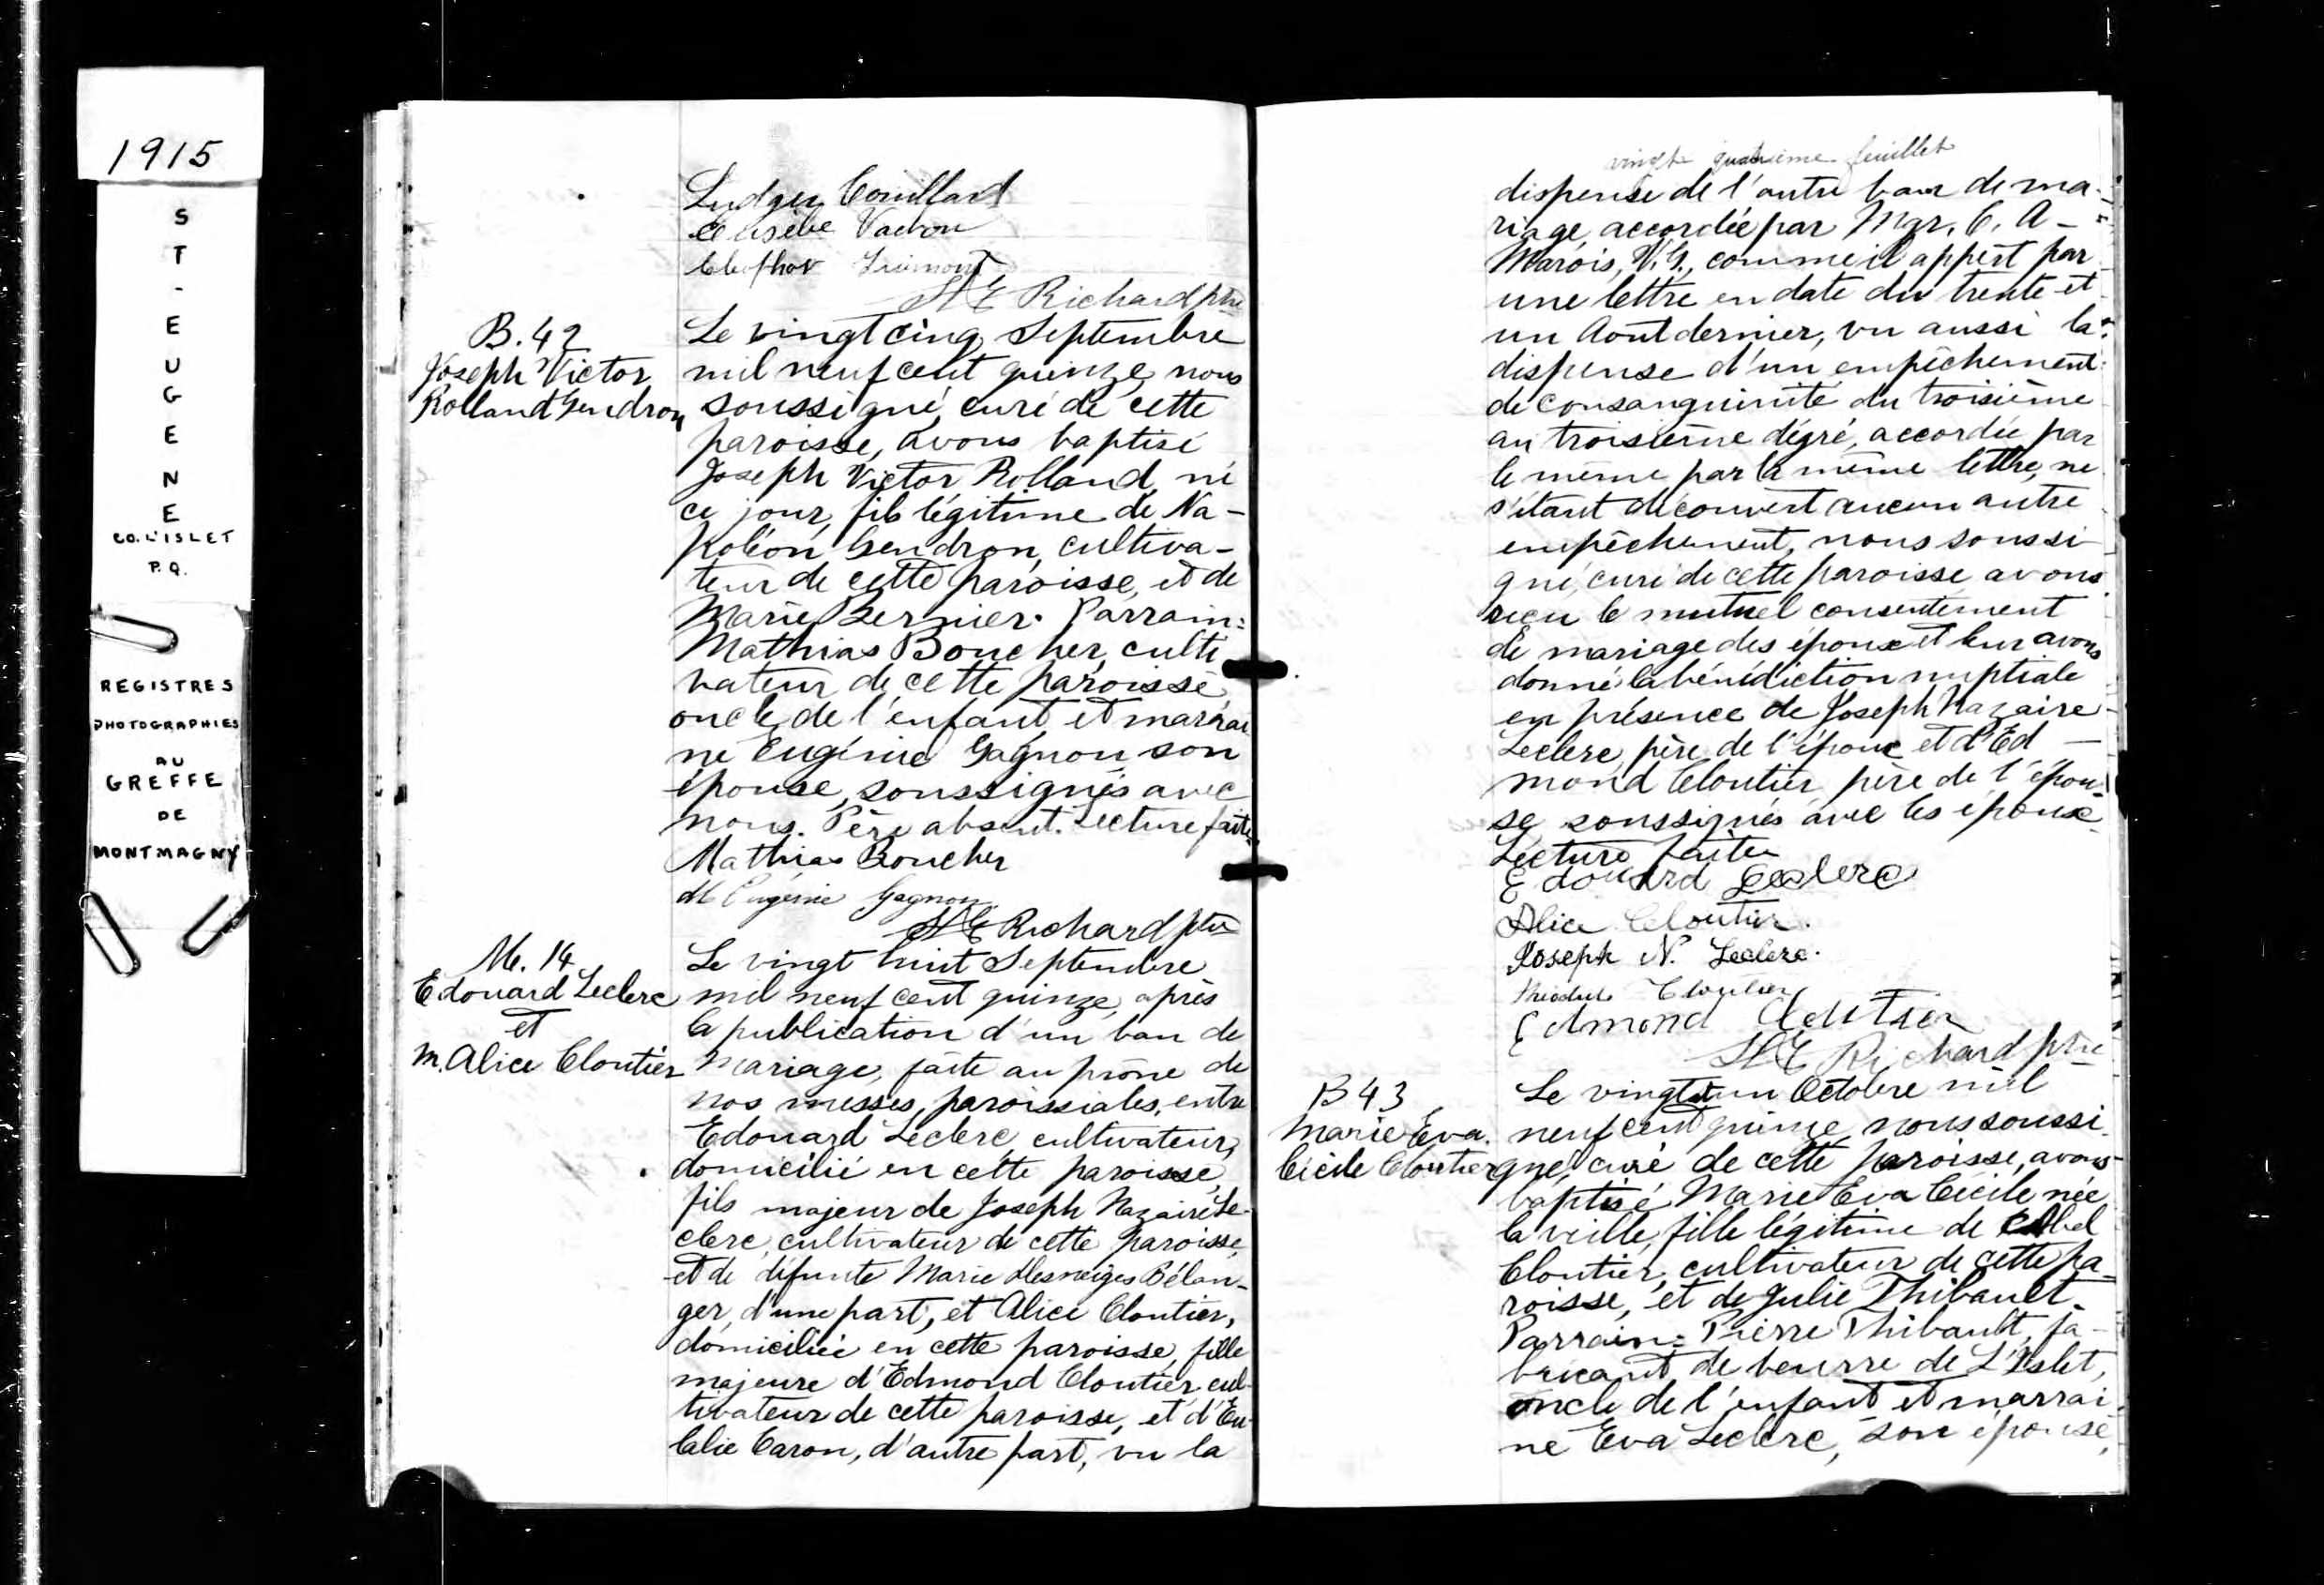 1915
S
T
-
E
U
G
E
N
E
CO. L'ISLET
P.Q.
REGISTRES
PHOTOGRAPHIES
AU
GREFFE
DE
MONTMAGNY
Ludger Couillard
Eusèbe Vachon
H E Richard ptre
B. 42
Joseph Victor
Rolland Gendron
Le vingt cinq Septembre
mil neuf cent quinze, nous
soussigné, curé de cette
paroisse, avons baptisé
Joseph Victor Rolland, né
ce jour, fils légitime de Na-
poléon Gendron, cultiva-
teur de cette paroisse, et de
Marie Bernier. Parrain:
Mathias Boucher, culti
vateur de cette paroisse
oncle de l'enfant et marrai
ne Eugénie Gagnon son
épouse, soussignés avec
nous. Père absent. Lecture faite
Mathias Boucher
M Eugénie Gagnon
H E Richard ptre
M. 14
Edouard Leclerc
et
M. Alice Cloutier
Le vingt huit Septembre
mil neuf cent quinze, après
la publication d'un ban de
mariage, faite au prône de
nos messes paroissiales, entre
Edouard Leclerc, cultivateur,
domicilié en cette paroisse,
fils majeur de Joseph Nazaire Le-
clerc, cultivateur de cette paroisse,
et de défunte Marie Desneiges Bélan-
ger, d'une part, et Alice Cloutier,
domiciliée en cette paroisse, fille
majeure d'Edmond Cloutier cul-
tivateur de cette paroisse, et d'Eu-
lalie Caron, d'autre part, vu la
vingt quatrième feuillet
dispense de l'autre ban de ma-
riage, accordée par Mgr. C. A-
Marois, V.G., comme il appert par
une lettre en date du trente et
un Août dernier, vu aussi la
dispense d'un empêchement
de consanguinité du troisième
au troisième dégré, accordée par
le même par la même lettre, ne
s'étant découvert aucun autre
empêchement, nous soussi
gné, curé de cette paroisse avons
reçu le mutuel consentement
de mariage des époux et leur avons
donné la bénédiction nuptiale
en présence de Joseph Nazaire
Leclerc, père de l'époux et d'Ed-
mond Cloutier père de l'épou-
se soussignés avec les époux.
Lecture faite
Edouard Leclerc
Alice Cloutier.
Joseph N. Leclerc.
Cloutier
Edmond Cloutier
H E Richard ptre
B 43
Marie Eva.
Cécile Cloutier
Le vingt et un Octobre mil
neuf cent quinze nous soussi-
gné, curé de cette paroisse, avons
baptisé Marie Eva Cécile née
la veille, fille légitime de Abel
Cloutier, cultivateur de cette pa-
roisse, et de Julie Thibault.
Parrain: Pierre Thibault, fa-
bricant de beurre de L'Islet,
oncle de l'enfant et marrai
ne Eva Leclerc, son épouse,